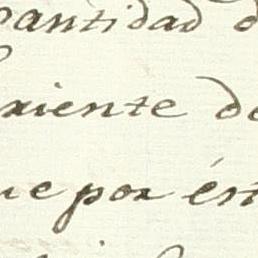 cantidad d
xiente de
ue por ést